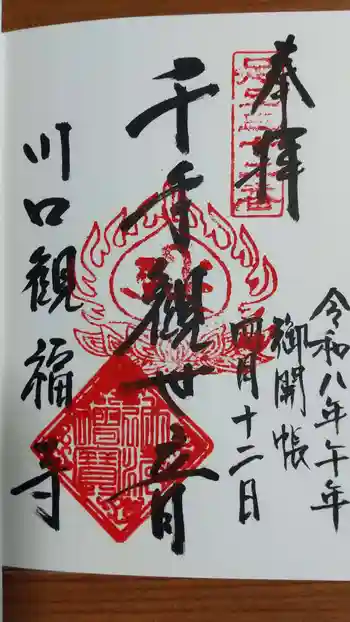 奉拝
令和八年午年
御開帳
四月十二日
千手観世音
川口観福寺